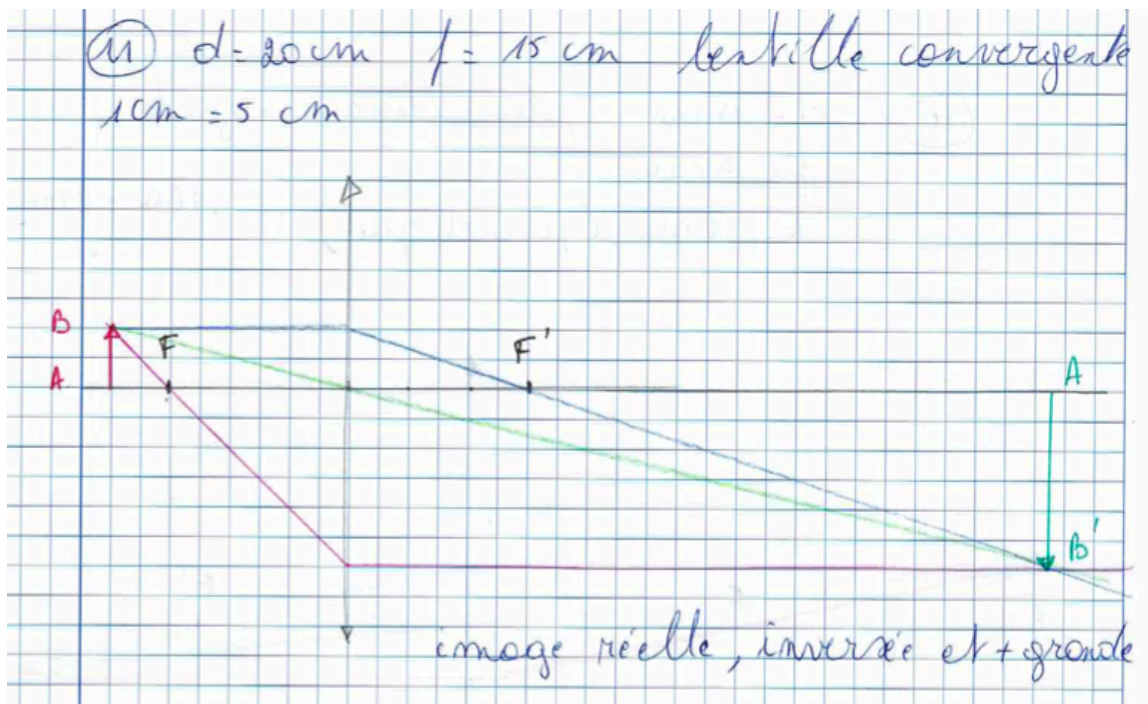 11 d=20cm f= 15 cm lentille convergente
1cm = 5 cm
B F F'
A A
B'
image réelle, inversée et + grande